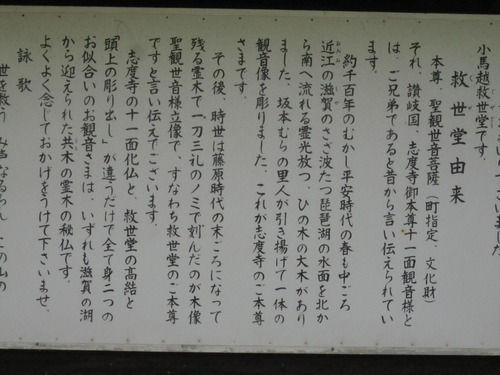 小馬越救世堂です。
救世堂由来
くぜ
本尊 聖観世音菩薩(町指定、文化財)
それ 讃岐国、志度寺御本尊十一面観音様と
は、ご兄弟であると昔から言い伝えられてい
ます。
約千百年のむかし平安時代の春も中ごろ
近江の滋賀のさざ波たつ琵琶湖の水面を北か
ら南へ流れる霊光放つ、ひの木の大木があり
ました、坂本むらの里人が引き揚げて一体の
観音像を彫りました、これが志度寺のご本尊
さまです。
その後、時世は藤原時代の末ごろになって
残る霊木で一刀三礼のノミで刻んだのが木像
聖観世音様立像で、すなわち救世堂のご本尊
ですと言い伝えでございます。
志度寺の十一面化仏と、救世堂の高結と
「頭上の彫り出し」が違うだけで全て身二つの
お似合いのお観音さまは、いずれも滋賀の湖
から迎えられた共木の霊木の秘仏です。
よくよく念じておかげをうけて下さいませ。
詠歌
世を救う